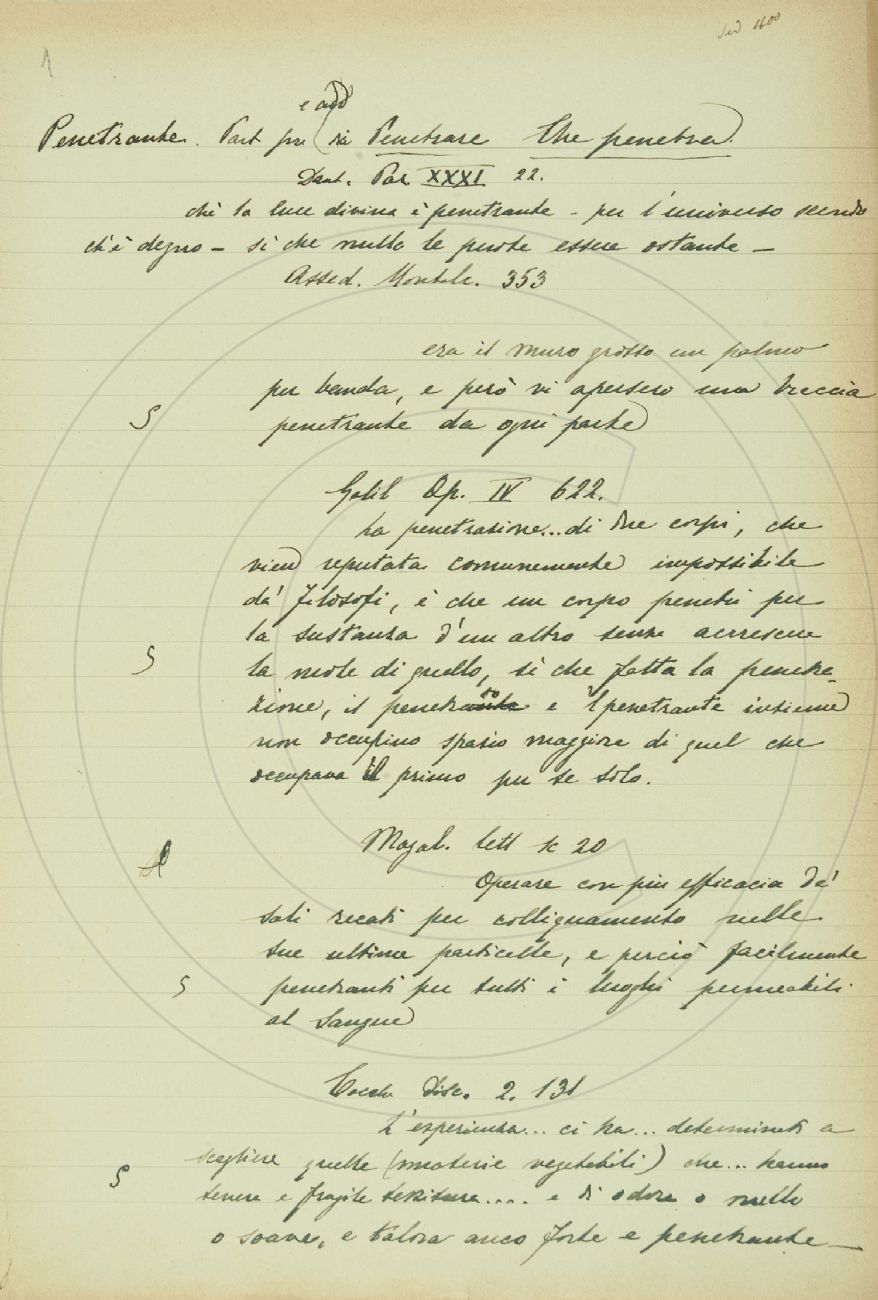 1
e add
Penetrante. Part pre da Penetrare Che penetra.
Dant. Par XXXI 22.
chè la luce divina è penetrante - per l'universo secondo
ch'è degno - sì che nulla le puote essere ostante -
Assed. Montale. 353
era il muro grosso un palmo
S per banda, e però vi apersero una breccia
penetrante da ogni parte
Galil Op. IV 622.
La penetrazione... di due corpi, che
vien reputata comunemente impossibile
da' filosofi, è che un corpo penetri per
la sustanza d'un altro senza accrescere
S la mole di quello, sì che fatta la penetra-
zione, il penetrato e 'l penetrante insieme
non occupino spazio maggiore di quel che
occupava il primo per se solo.
Magal. lett sc 20
Operare con più efficacia da'
sali recati per colliquamento nelle
sue ultime particelle, e perciò facilmente
S penetranti per tutti i luoghi permeabili
al sangue
Cocch Disc. 2. 131
L'esperienza... ci ha... determinati a
S scegliere quelle (materie vegetabili) che... hanno
tenera e fragile testura.... e di odore o nullo
o soave, e talora anco forte e penetrante -